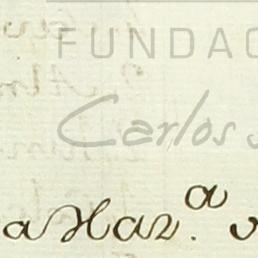 FUNDAC
Carlos
a Har.ª